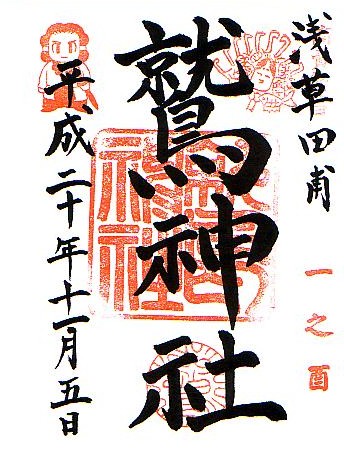 浅草田甫
一之酉
鷲神社
平成二十年十一月五日